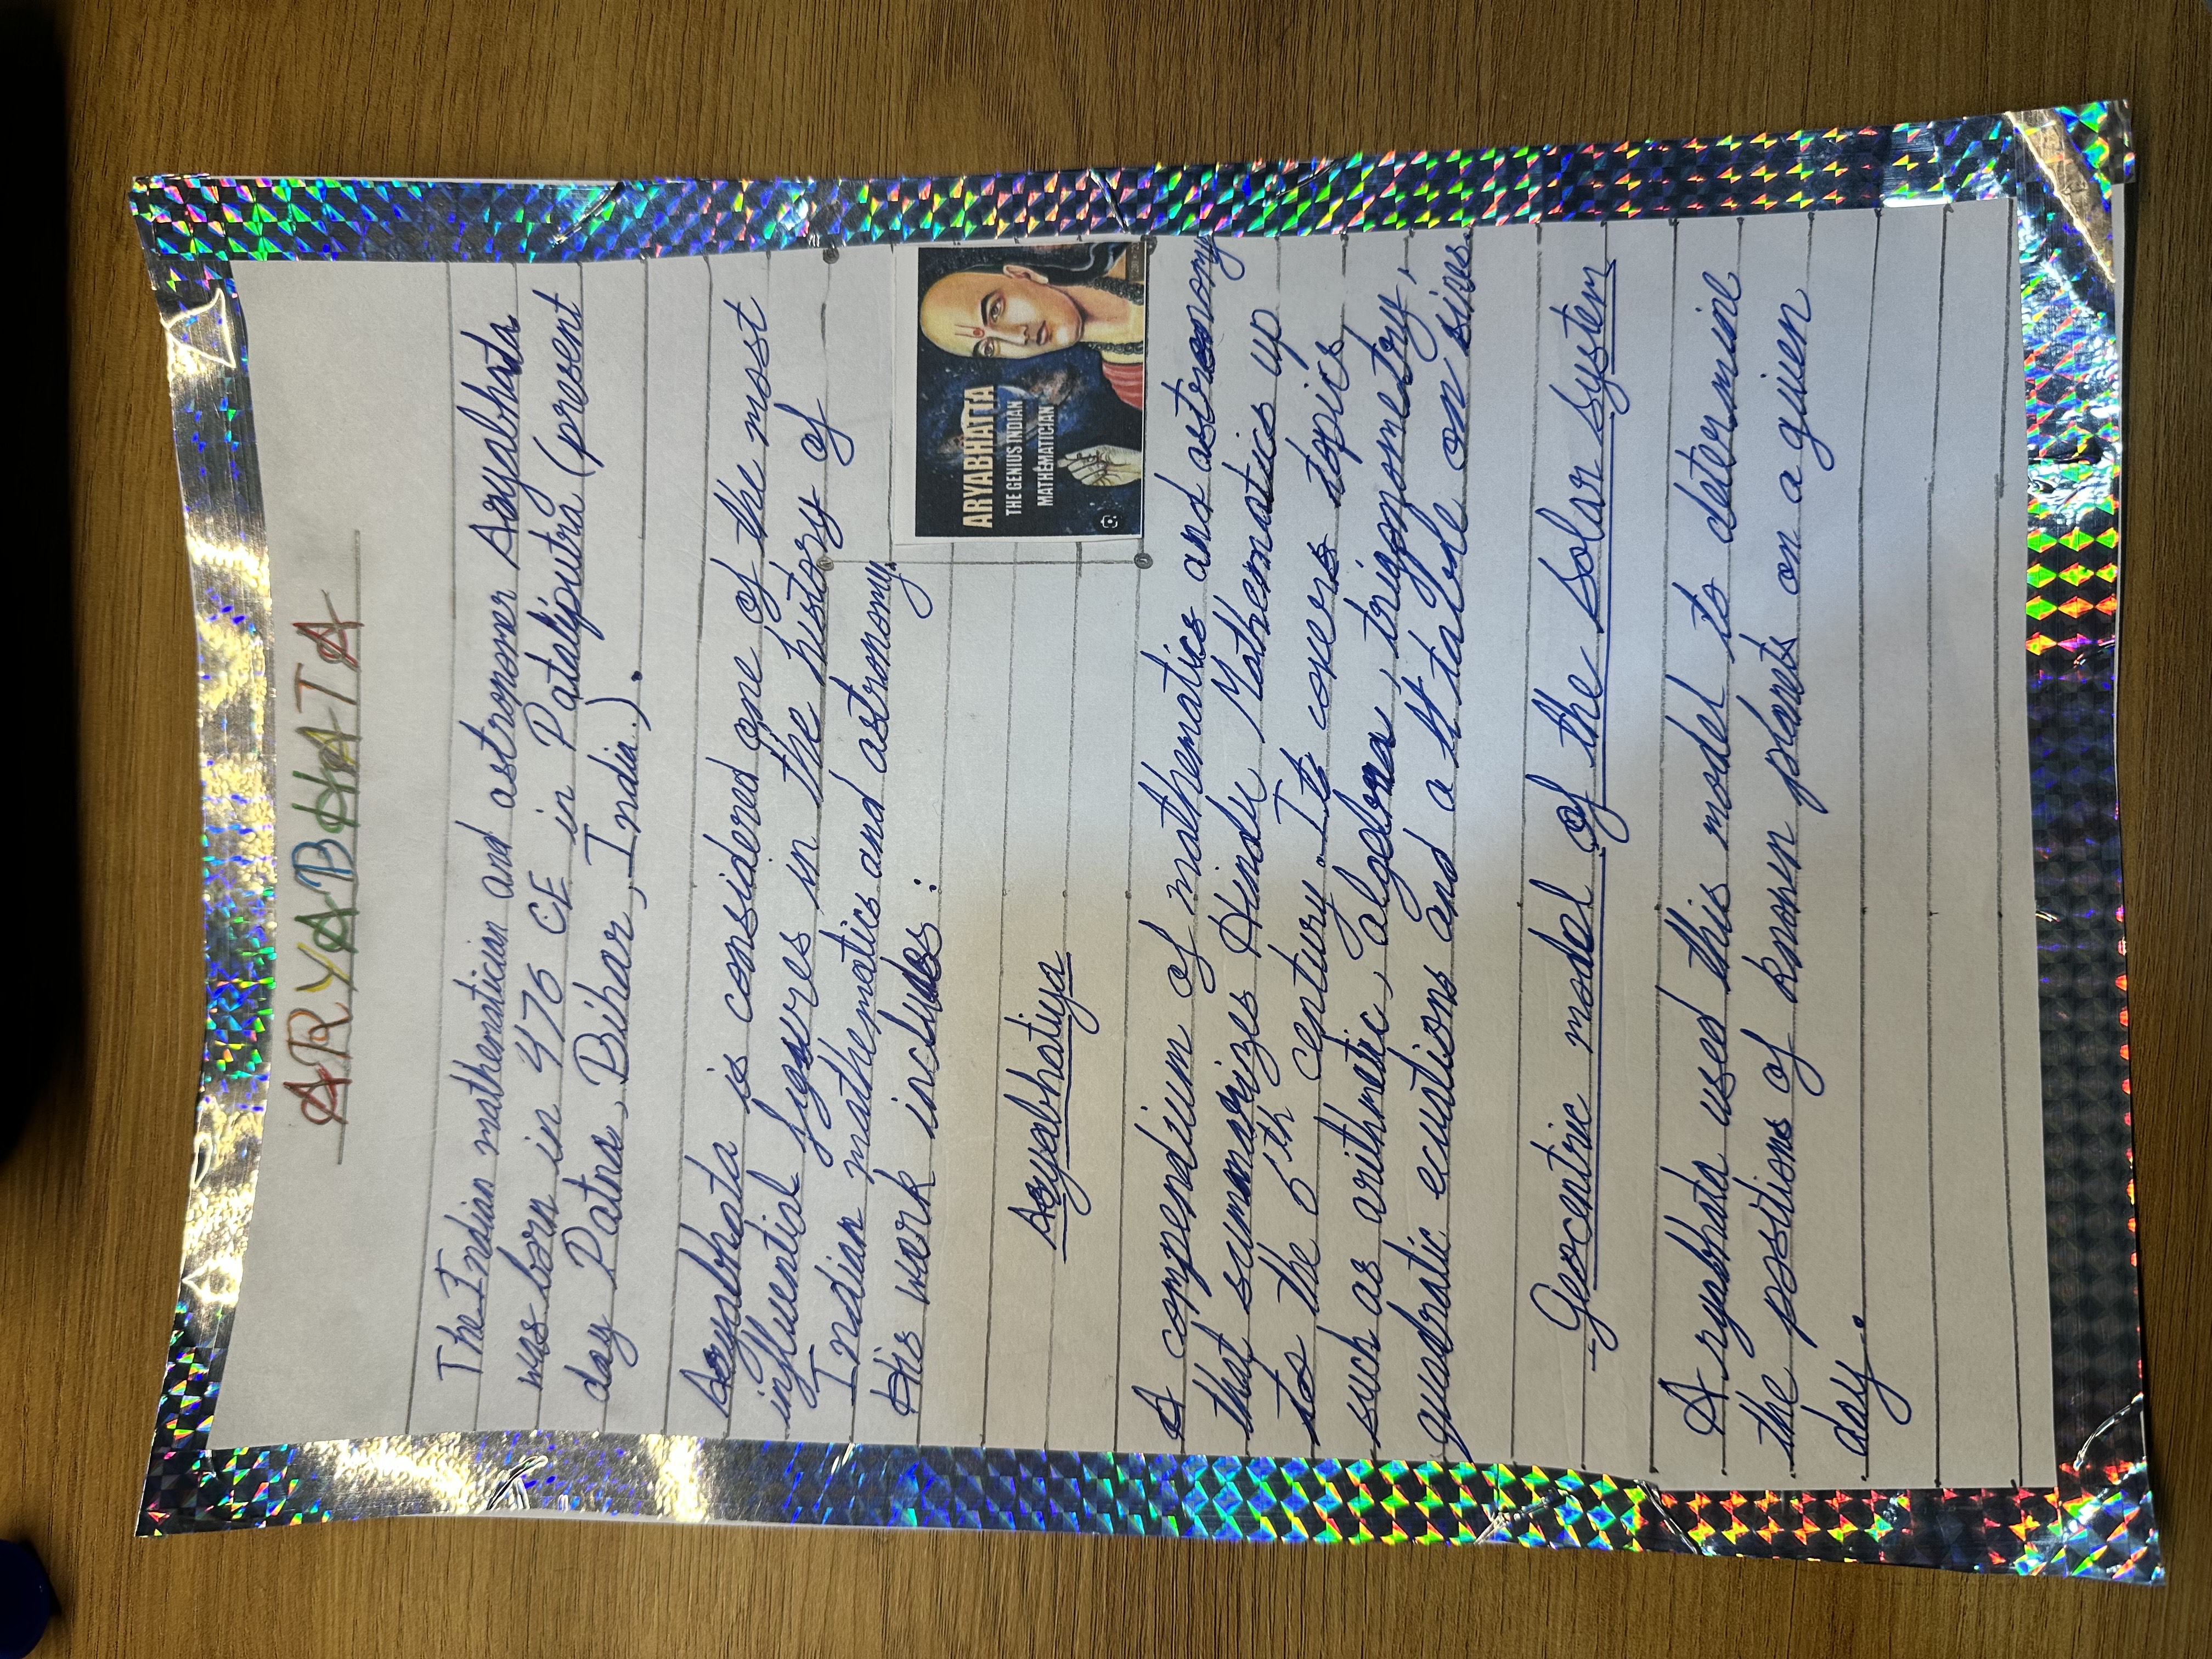 ARYABHATA
The Indian mathematician and astronomer Aryabhata
was born in 476 CE in Pataliputra (present
day Patna, Bihar, India.).
Aryabhata is considered one of the most
influential figures in the history of
Indian mathematics and astronomy.
His work includes :
ARYABHATTA
THE GENIUS INDIAN
MATHEMATICIAN
Aryabhatiya
A compendium of mathematics and astronomy
that summarizes Hindu Mathematics up
to the 6th century. It covers topics
such as arithmetic, algebra, trigonometry,
quadratic ecuations and a table on sines.
Geocentric model of the Solar System
Aryabhata used this model to determine
the positions of known planets on a given
day.